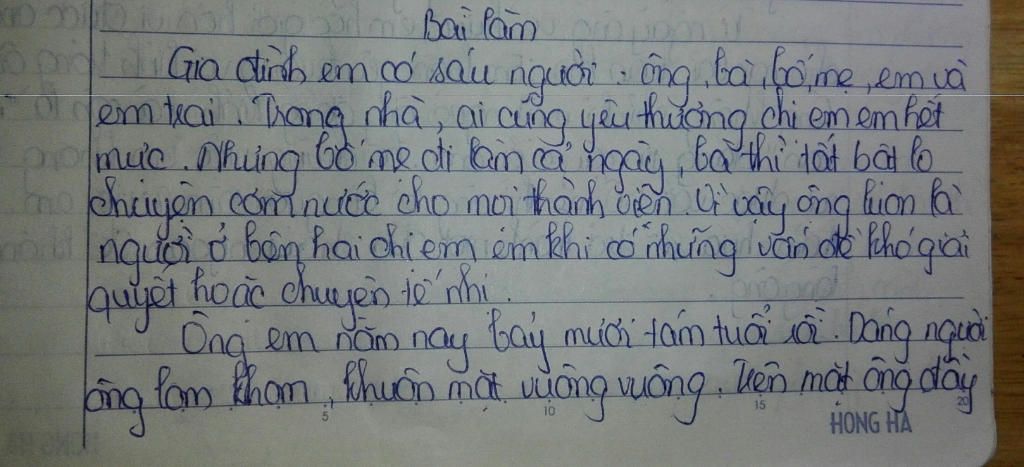 Bài làm
Gia đình em có sáu người: ông, bà, bố, mẹ, em và
em trai. Trong nhà, ai cũng yêu thương chị em em hết
mực. Nhưng bố mẹ đi làm cả ngày, bà thì tất bật lo
chuyện cơm nước cho mọi thành viên. Vì vậy ông luôn là
người ở bên hai chị em em khi có những vấn đề khó giải
quyết hoặc chuyện tế nhị.
Ông em năm nay bảy mươi tám tuổi rồi. Dáng người
ông lom khom, khuôn mặt vuông vuông. Trên mặt ông đầy
5 10 15 20
HONG HA